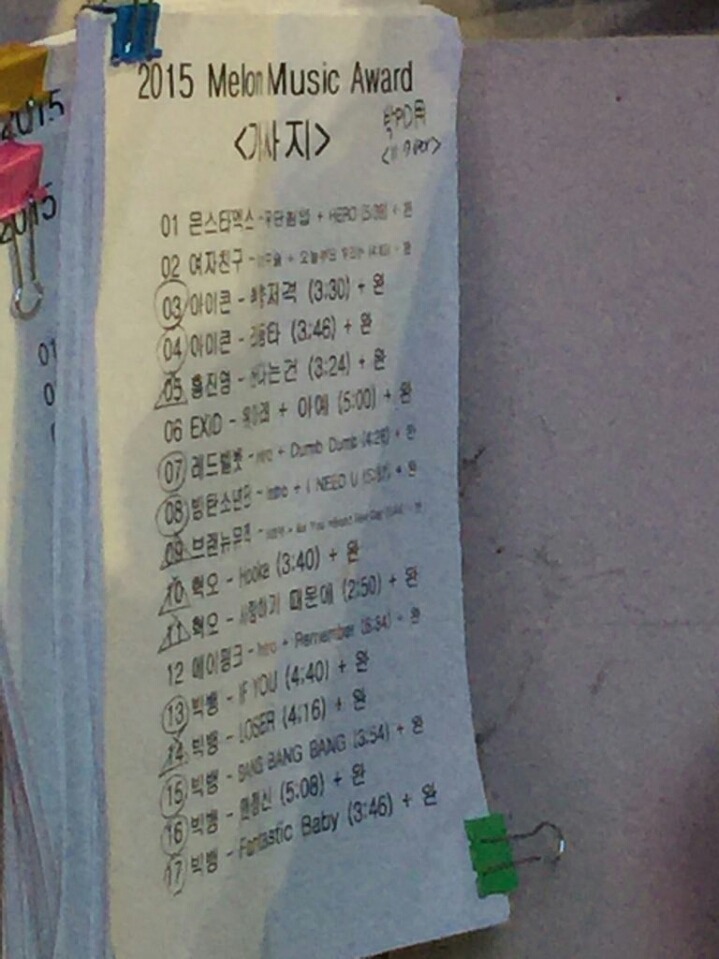 2015 Melon Music Award
<가사지>
01 몬스타엑스 - 무단침입 + HERO (5:09) + 완
02 여자친구 - + 오늘부터 우리는 + 완
03 아이콘 - 취향저격 (3:30) + 완
04 아이콘 - 리듬타 (3:46) + 완
05 홍진영 - 산다는건 (3:24) + 완
06 EXID - 위아래 + 아예 (5:00) + 완
07 레드벨벳 - Intro + Dumb Dumb (4:28) + 완
08 방탄소년단 - Intro + I NEED U + 완
09 브랜뉴뮤직 -
10 혁오 - Hooka (3:40) + 완
11 혁오 - 사랑하기 때문에 (2:50) + 완
12 에이핑크 - Intro + Remember + 완
13 빅뱅 - IF YOU (4:40) + 완
14 빅뱅 - LOSER (4:16) + 완
15 빅뱅 - BANG BANG BANG (3:54) + 완
16 빅뱅 - 맨정신 (5:08) + 완
17 빅뱅 - Fantastic Baby (3:46) + 완
2015
2015
01
0